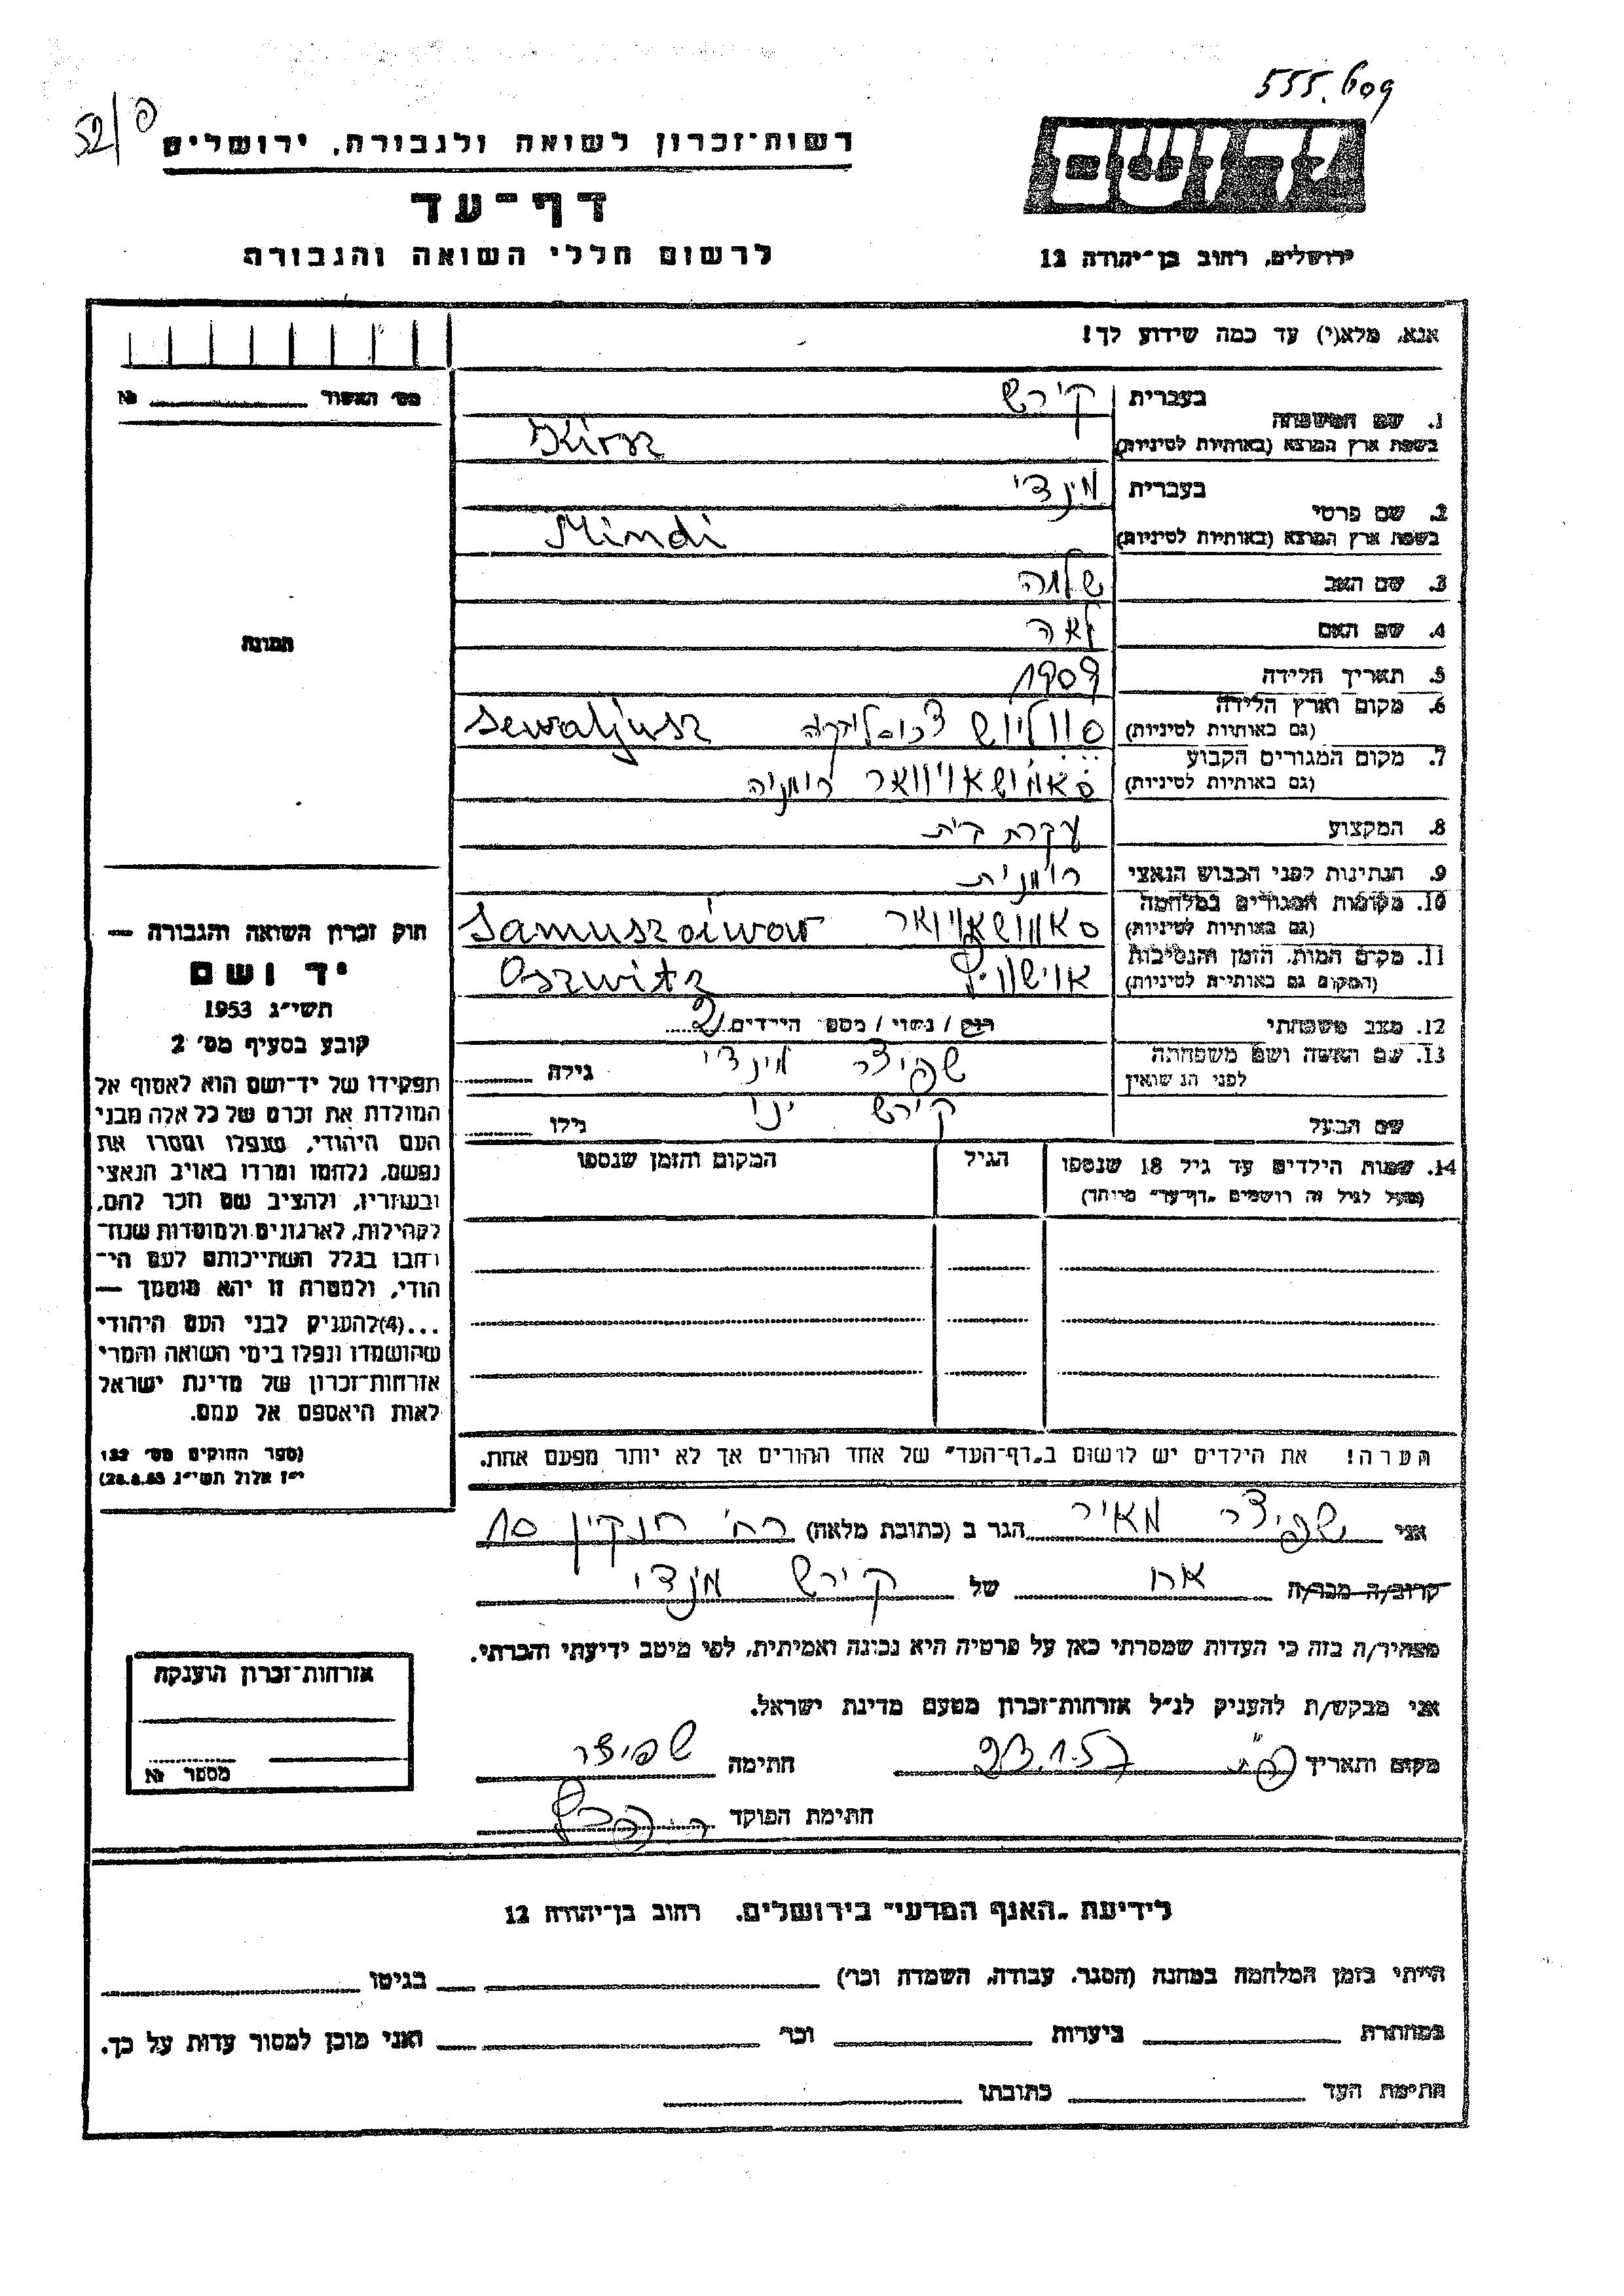 555.609
52/פ
רשות־זכרון לשואה ולגבורה, ירושלים
דף־עד
לרשום חללי השואה והגבורה
יד ושם
ירושלים, רחוב בן־יהודה 12
אנא, מלא(י) עד כמה שידוע לך!
מס׳ האשור № 
תמונה
1. שם המשפחה
בעברית קירש
בשפת ארץ המוצא (באותיות לטיניות) Kirsz
2. שם פרטי
בעברית מינדי
בשפת ארץ המוצא (באותיות לטיניות) Mindi
3. שם האב שלמה
4. שם האם לאה
5. תאריך הלידה 1909
6. מקום וארץ הלידה
(גם באותיות לטיניות) סווליוש Sewaljusz
7. מקום המגורים הקבוע
(גם באותיות לטיניות) סאמושאויוואר רומניה
8. המקצוע עקרת בית
9. הנתינות לפני הכבוש הנאצי רומנית
10. מקומות המגורים במלחמה
(גם באותיות לטיניות) סאמושאויואר Samuszoiwar
11. מקום המות, הזמן והנסיבות
(המקום גם באותיות לטיניות) אוישוויץ Oszwitz
12. מצב משפחתי רוק / נשוי / מספר הילדים 2
13. שם האשה ושם משפחתה
לפני הנשואין שפיצר מינדי גילה
שם הבעל קירש גילו
14. שמות הילדים עד גיל 18 שנספו
(מעל לגיל זה רושמים „דף־עד״ מיוחד)
הגיל
המקום והזמן שנספו
הערה! את הילדים יש לרשום ב„דף־העד״ של אחד ההורים אך לא יותר מפעם אחת.
חוק זכרון השואה והגבורה —
יד ושם
תשי״ג 1953
קובע בסעיף מס׳ 2
תפקידו של יד־ושם הוא לאסוף אל
המולדת את זכרם של כל אלה מבני
העם היהודי, שנפלו ומסרו את
נפשם, נלחמו ומרדו באויב הנאצי
ובעוזריו, ולהציב שם וזכר להם,
לקהילות, לארגונים ולמוסדות שנח־
רבו בגלל השתייכותם לעם הי־
הודי, ולמטרה זו יהא מוסמך —
...(4)להעניק לבני העם היהודי
שהושמדו ונפלו בימי השואה והמרי
אזרחות־זכרון של מדינת ישראל
לאות היאספם אל עמם.
(ספר החוקים מס׳ 132
י״ז אלול תשי״ג 28.8.53)
אני שפיצר מאיר הגר ב (כתובת מלאה) רח׳ חנקין 10
קרוב/ה מכר/ה אח של קירש מנדי
מצהיר/ה בזה כי העדות שמסרתי כאן על פרטיה היא נכונה ואמיתית, לפי מיטב ידיעתי והכרתי.
אני מבקש/ת להעניק לנ״ל אזרחות־זכרון מטעם מדינת ישראל.
מקום ותאריך פ״ת 23.1.57 חתימה שפיצר
חתימת הפוקד
אזרחות־זכרון הוענקה
מספר №
לידיעת „האגף המדעי״ בירושלים, רחוב בן־יהודה 12
הייתי בזמן המלחמה במחנה (הסגר, עבודה, השמדה וכו׳) בגיטו
במחתרת ביערות וכו׳ ואני מוכן למסור עדות על כך.
חתימת העד כתובתו